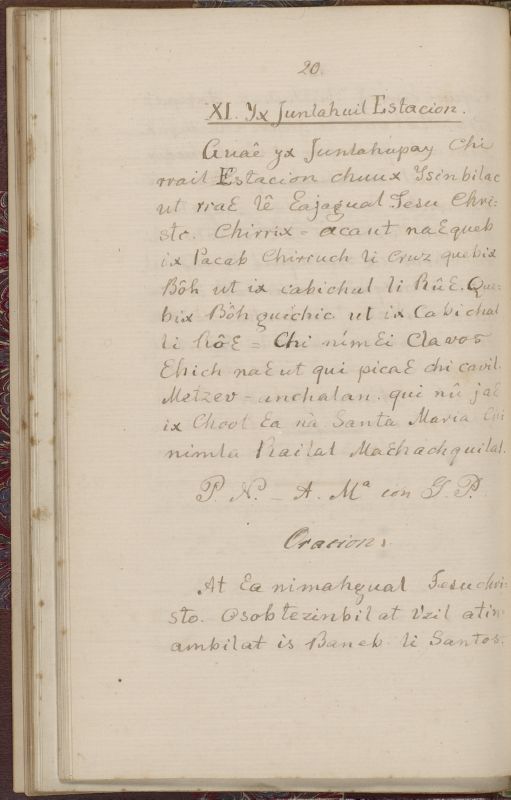 20.
XI. Yx Junlahuil Estacion.
Auaê yx Junlahupay Chi
rrail Estacion chuux Ysinbilac
ut rraE lê Eajagual Jesu Chri=
sto. Chirrix = acaut naEqueb
ix Pacab Chirruch li Cruz quebix
Bôh ut ix cabichal li RûE. Que=
bix Bôh guichic ut ix Cabichal
li RôE = Chi nimEi Clavos
Ehich naEut qui picaE chi cavil.
Metzev = anchalan. qui nû jaE
ix Chool Ea nà Santa Maria
nimla Railal MaEhachquilal.
P. N. _ A. Mª con G. P.
Oracion.
At Ea nimahgual Jesuchri=
sto. Osobtezinbilat Vzil atin=
ambilat is Baneb li Santos.